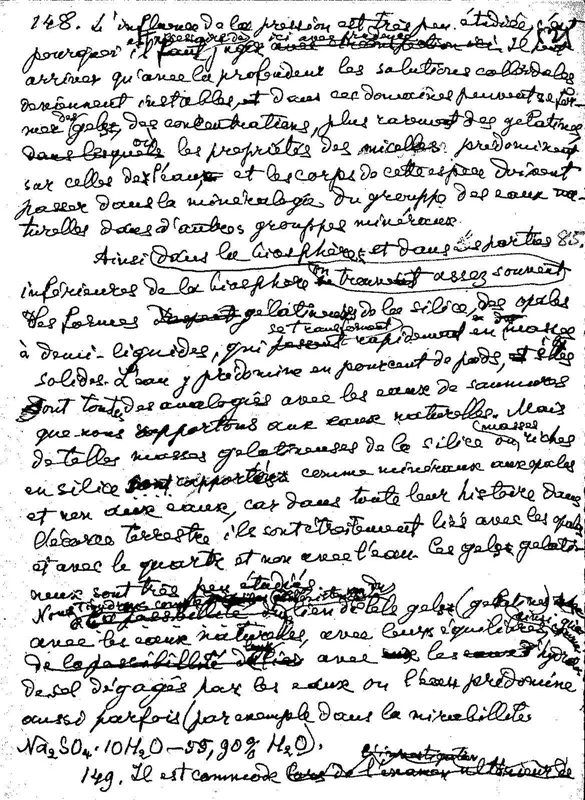 148. L'influence de la pression est très peu étudiée, c'est
pourquoi il faut nécessaire de ici avec prudence. Il peut
arriver qu'avec la profondeur les solutions colloïdales
deviennent instables et dans ces domaines peuvent se for-
mer des gels, des concentrations, plus rarement des gelatines
dans lesquels où les propriétés des micelles predominent
sur celles des l'eau, et les corps de cette espèce doivent
passer dans la mineralogie du grouppe des eaux na-
turelles dans d'autres grouppes minéraux.
Ainsi dans la biosphère et dans les parties 85.
inférieures de la biosphère on trouvent assez souvent
des formes gelatineuses de la silice, des opales
à demi-liquides, qui se transforment rapidement en masses
solides. L'eau y prédomine en pourcent de poids, et elles
sont toutes des analogies avec les eaux de saumures
que nous rapportons aux eaux naturelles. Mais
de telles masses gelatineuses de la silice ou masses riches
en silice sont rapportées comme minéraux aux opales
et non aux eaux, car dans toute leur histoire dans
l'écorce terrestre ils sont étroitement liés avec les opales
et avec le quartz et non avec l'eau. Ces gels gelati-
neux sont très peu étudiés.
Nous la possibilité du lien de tels gels (gelatines)
avec les eaux naturelles, avec leurs équilibres, ainsi que
de la possibilité avec les eaux hydra
de sel dégagés par les eaux où l'eau prédomine
aussi parfois (par exemple dans la mirabilites
Na₂SO₄·10H₂O—55,90% H₂O).
149. Il est commode lors de l'examen ultérieur de